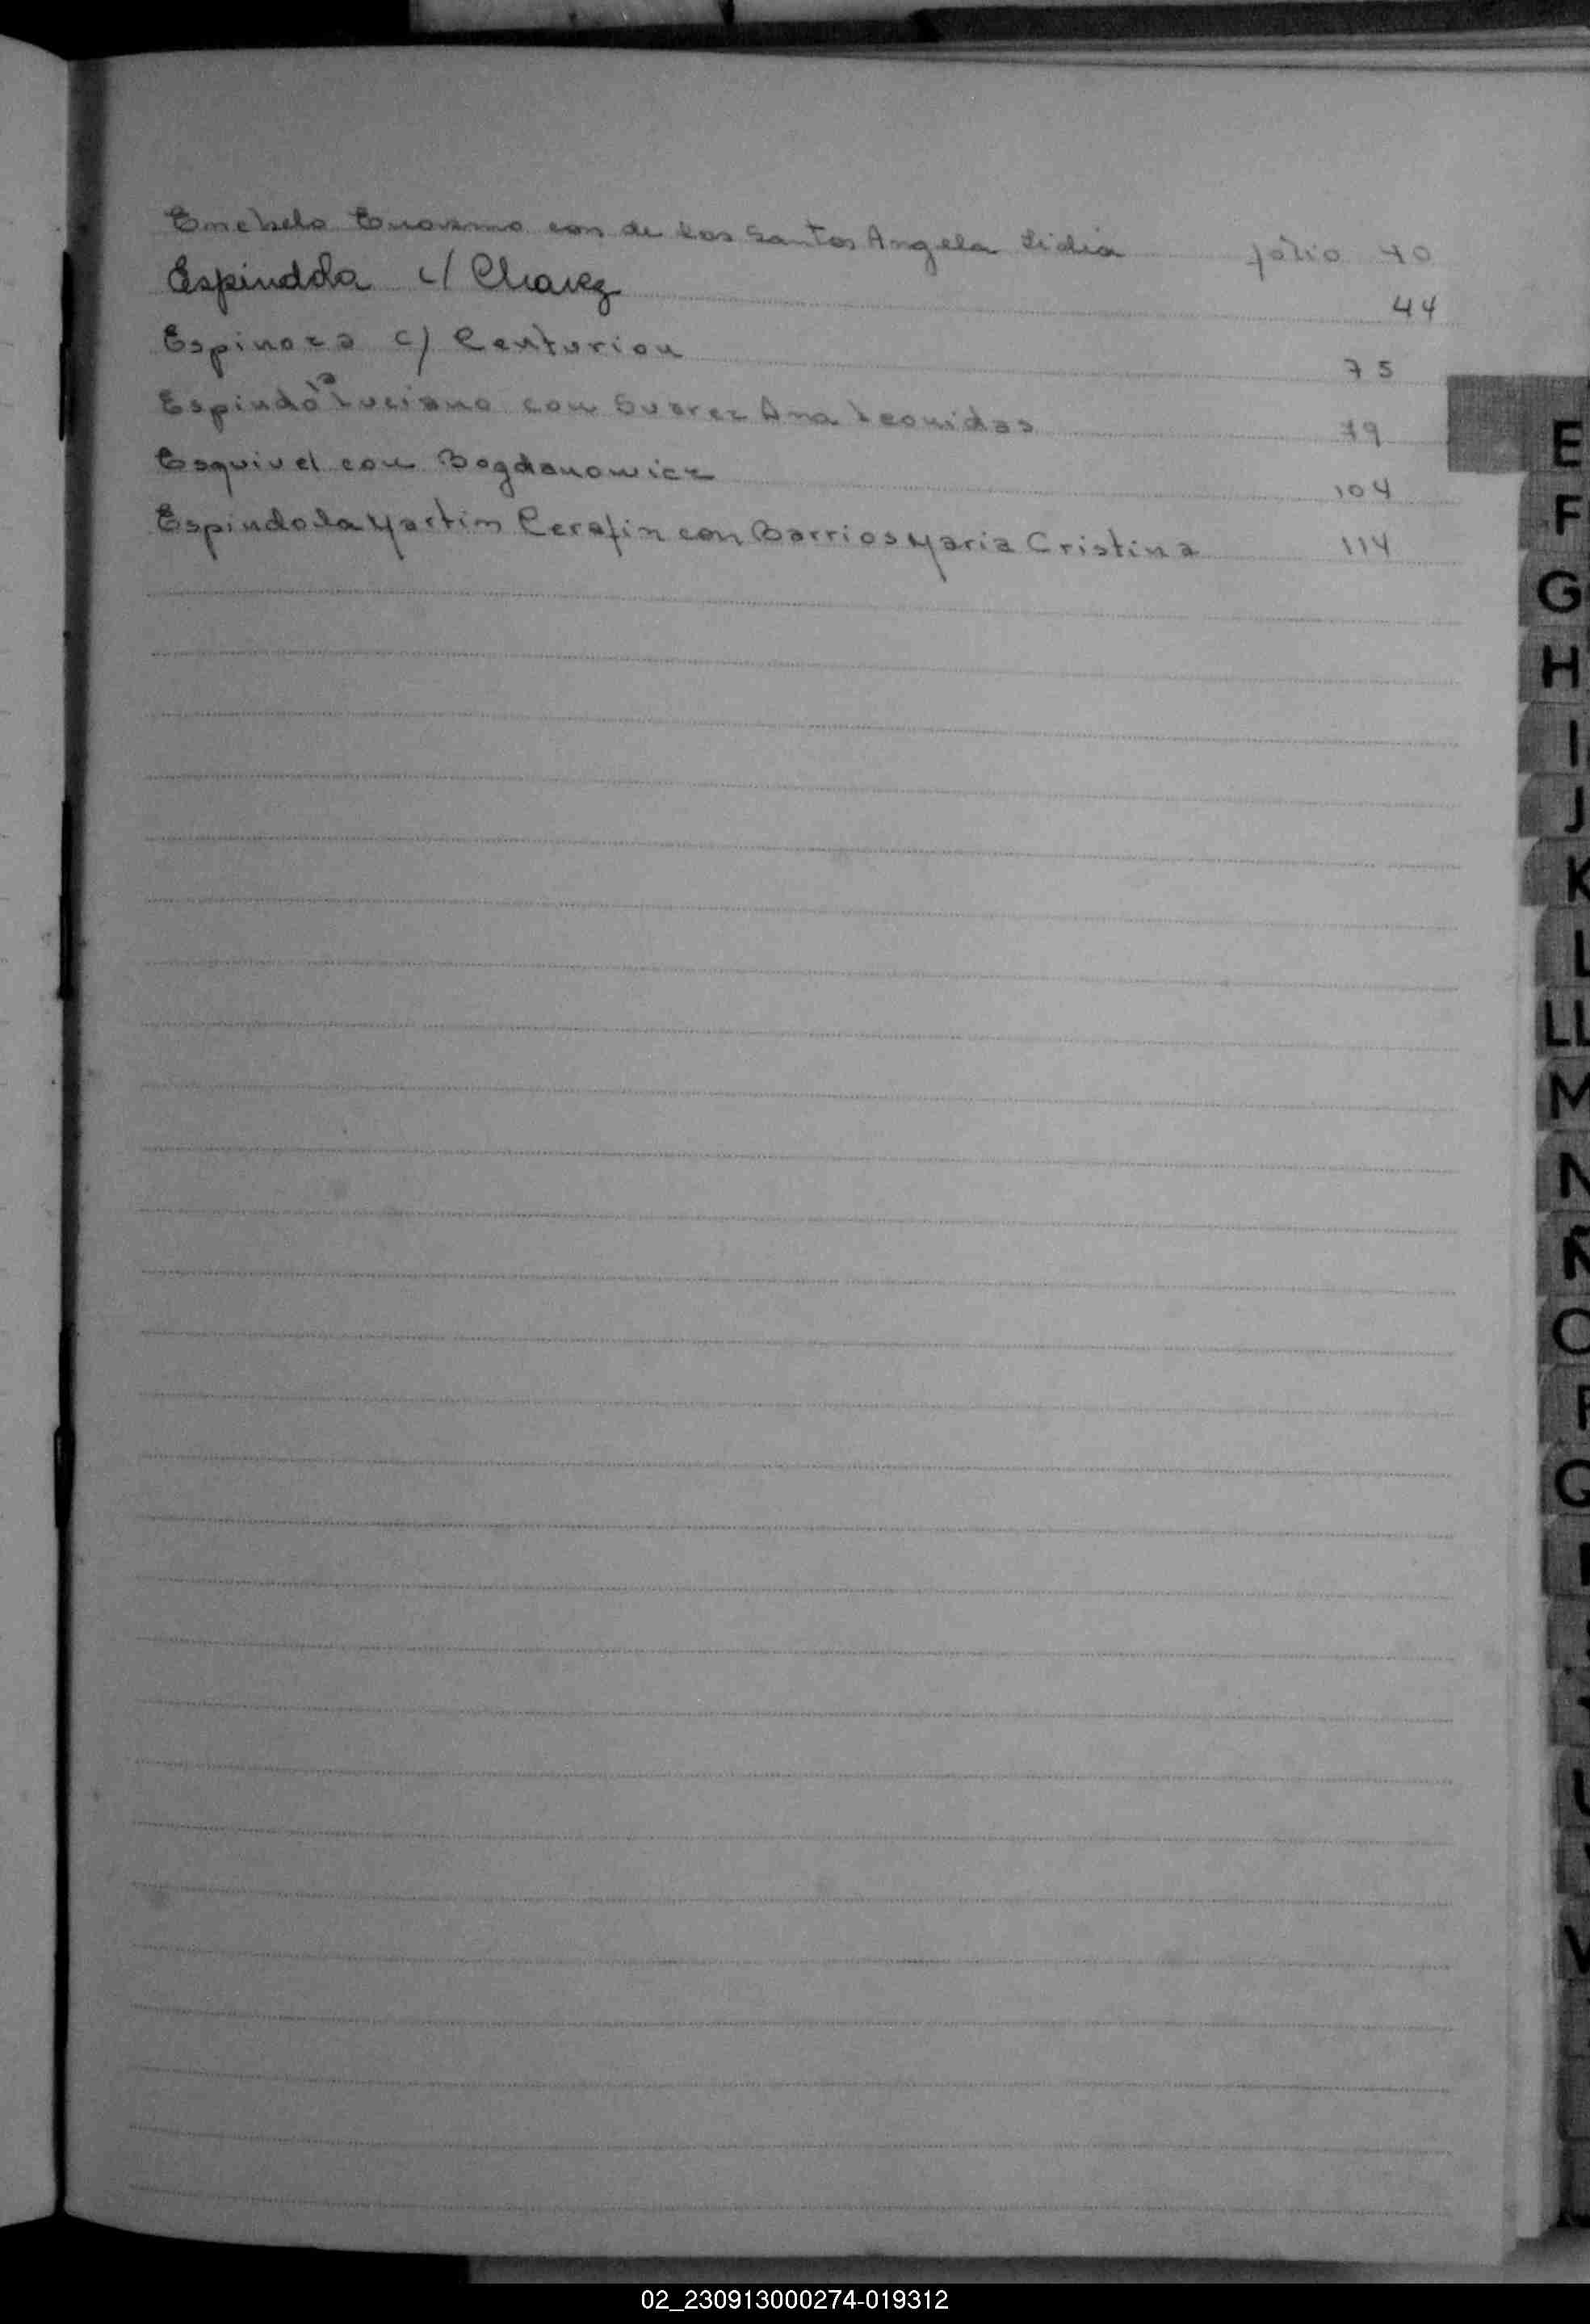 con de los Santos Angela Lidia folio 40
Espindola c/ Chavez 44
Espinoza c/ Centurion 75
Espindola Luciano con Suarez Ana Leonidas 79
Esquivel con Bogdanowicz 104
Espindola Martin Cerafin con Barrios Maria Cristina 114
E
F
G
H
I
J
K
L
LL
M
N
Ñ
O
P
Q
U
V
02_230913000274-019312